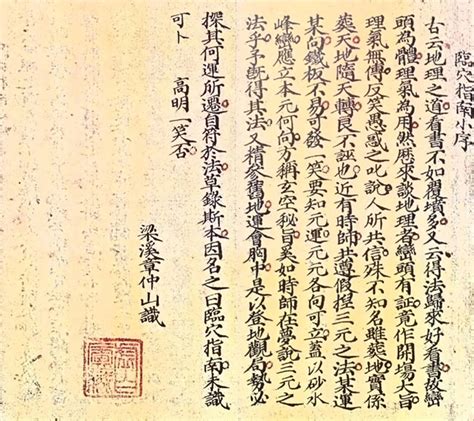 臨穴指南小序
古云地理之道看書不如覆墳多又云得法歸來好看書故巒
頭為體理氣為用然歷來談地理者巒頭有証竟作開場大旨
理氣無傳反笑愚惑之此說人所共信殊不知名雖葬地實係
葬天地隨天轉良不誣也近有時師共遵假捏三元之法某運
某向鐵板不易可發一笑要知元運元元各向可立蓋以砂水
峰巒應立本元何向方稱玄空秘旨奚如時師在夢說三元之
法乎予既得其法又精參舊地運會胸中是以登地觀局勢必
探其何運所遷自符於法草錄斯本因名之曰臨穴指南未識
可卜　高明一笑否
梁溪章仲山識